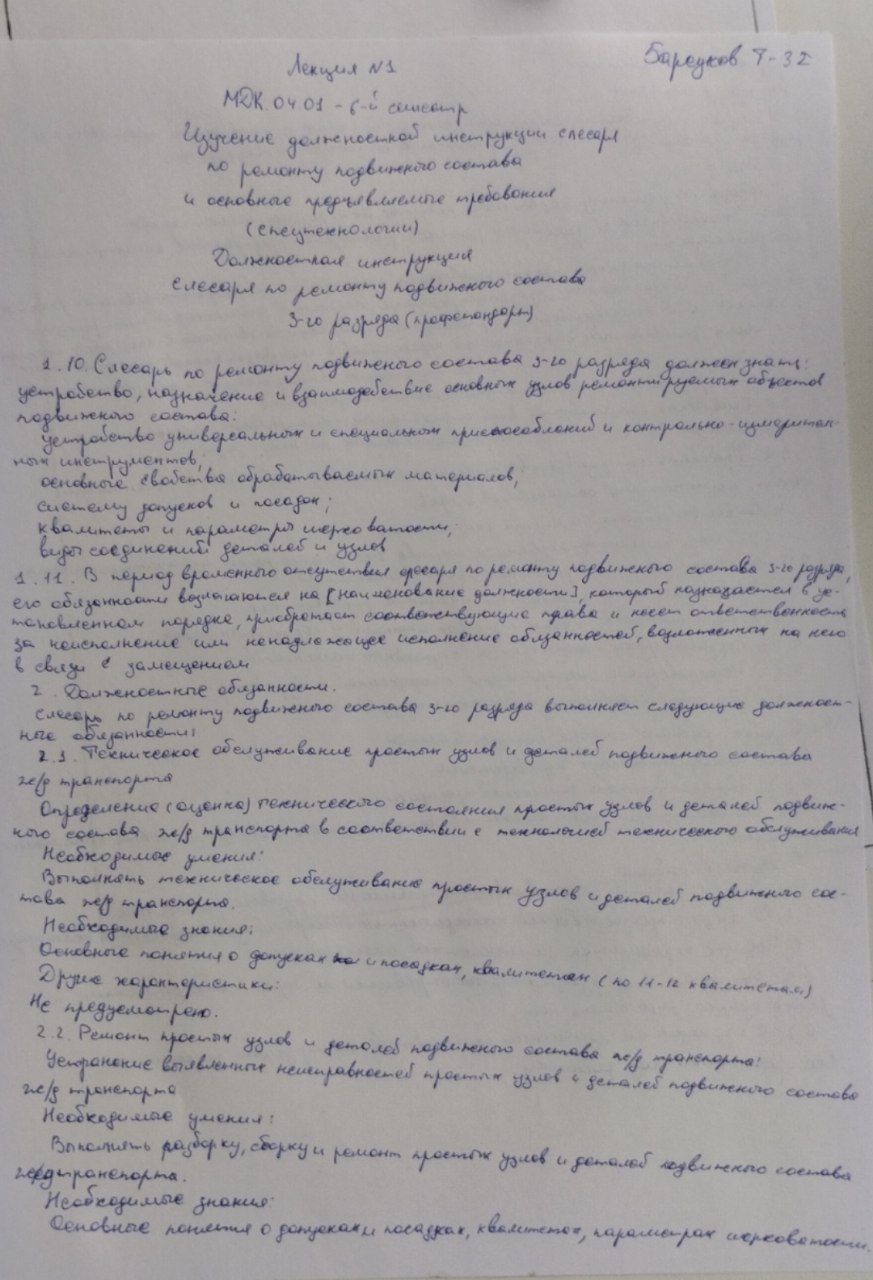 Лекция N1
МДК.04 01 - 6-й семестр
Изучение должностной инструкции слесаря
по ремонту подвижного состава
и основные предъявляемые требования
(спецтехнологии)
Должностная инструкция
слесаря по ремонту подвижного состава
3-го разряда (профстандарт)
1.10. Слесарь по ремонту подвижного состава 3-го разряда должен знать:
устройство, назначение и взаимодействие основных узлов ремонтируемых объектов
подвижного состава:
устройство универсальных и специальных приспособлений и контрольно-измеритель-
ных инструментов;
основные свойства обрабатываемых материалов,
систему допусков и посадок;
квалитеты и параметры шероховатости;
виды соединений деталей и узлов
1.11. В период временного отсутствия слесаря по ремонту подвижного состава 3-го разряда,
его обязанности возлагаются на [наименование должности], который назначается в ус-
тановленном порядке, приобретает соответствующие права и несет ответственность
за неисполнение или ненадлежащее исполнение обязанностей, возложенных на него
в связи с замещением
2. Должностные обязанности.
Слесарь по ремонту подвижного состава 3-го разряда выполняет следующие должност-
ные обязанности:
2.1. Техническое обслуживание простых узлов и деталей подвижного состава
ж/д транспорта
Определение (оценка) технического состояния простых узлов и деталей подвиж-
ного состава ж/д транспорта в соответствии с технологией технического обслуживания
Необходимые умения:
Выполнять техническое обслуживание простых узлов и деталей подвижного сос-
тава ж/д транспорта.
Необходимые знания:
Основные понятия о допусках и посадках, квалитетах (по 11-12 квалитетам)
Другие характеристики:
Не предусмотрено.
2.2. Ремонт простых узлов и деталей подвижного состава ж/д транспорта:
Устранение выявленных неисправностей простых узлов и деталей подвижного состава
ж/д транспорта
Необходимые умения:
Выполнять разборку, сборку и ремонт простых узлов и деталей подвижного состава
ж/д транспорта.
Необходимые знания:
Основные понятия о допусках и посадках, квалитетах, параметрах шероховатости.